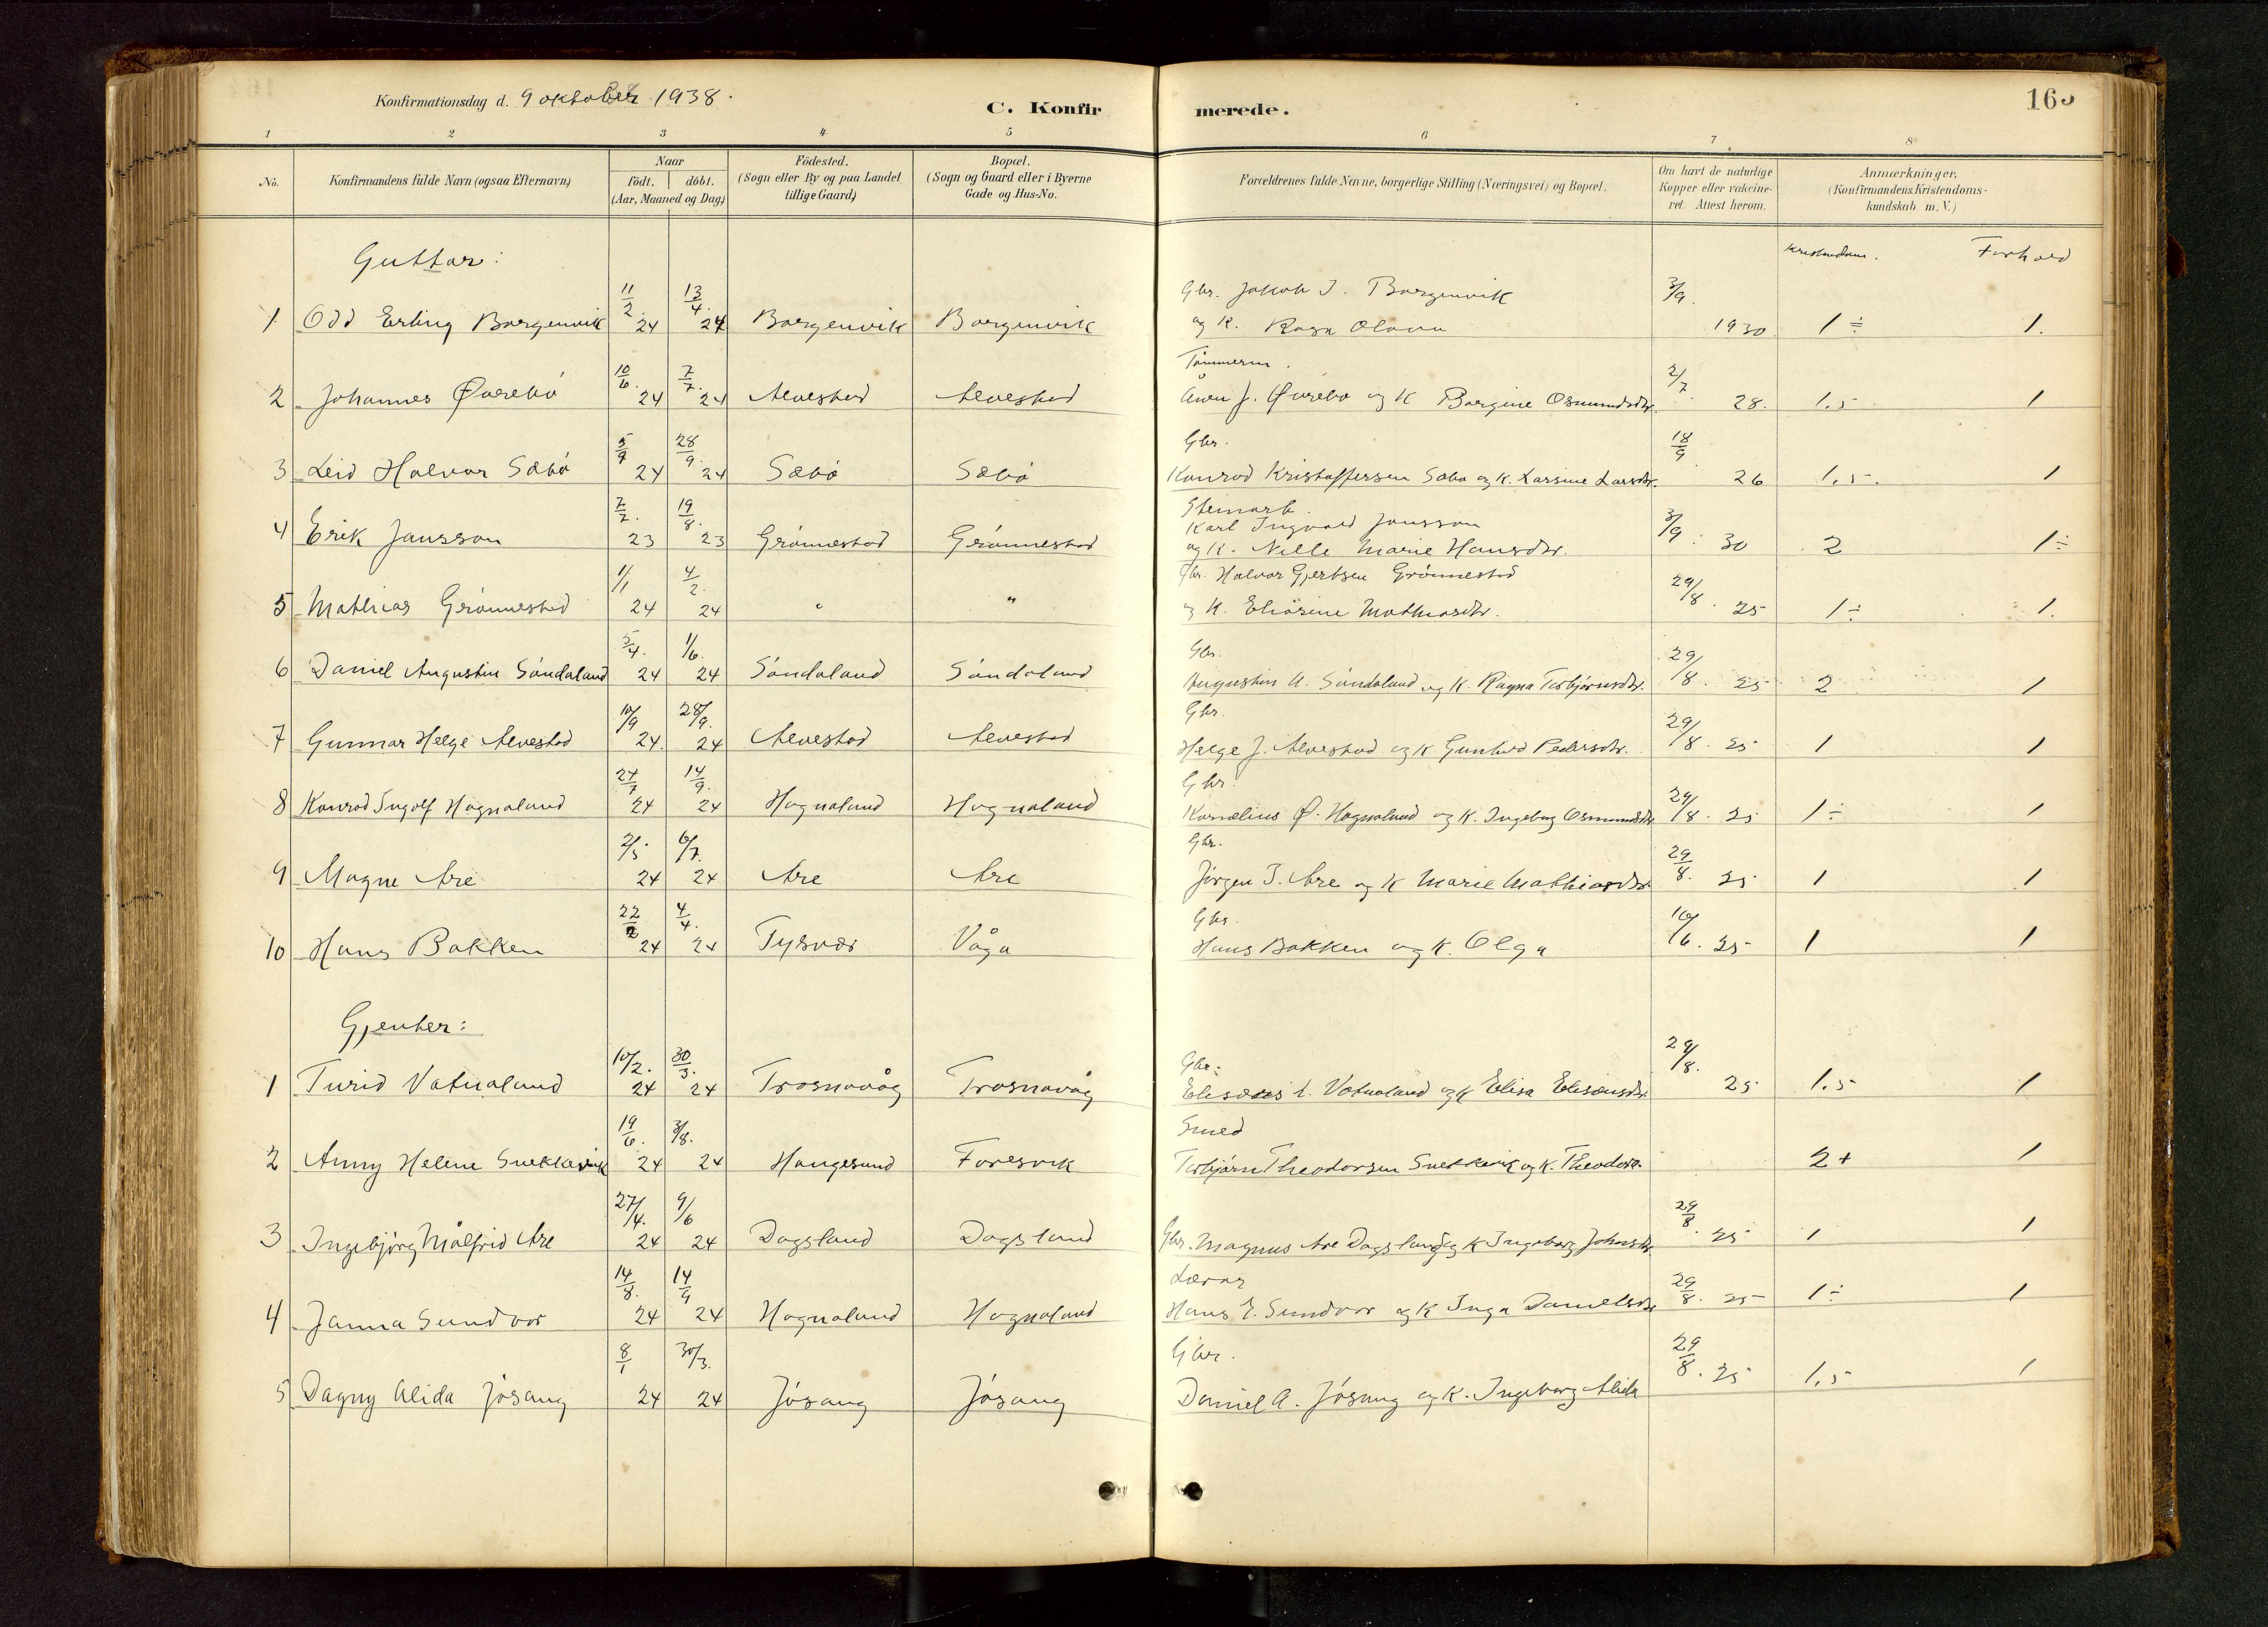 Konfirmationsdag d. 9 oktober 1938.
C. Konfirmerede.
165
1 2 3 4 5 6 7 8
No.
Konfirmandens fulde Navn (ogsaa Efternavn)
Naar
födt. döbt.
(Aar, Maaned og Dag)
Födested.
(Sogn eller By og paa Landet
tillige Gaard)
Bopæl.
(Sogn og Gaard eller i Byerne
Gade og Hus-No.
Forældrenes fulde Navne, borgerlige Stilling (Næringsvei) og Bopæl.
Om havt de naturlige
Kopper eller vakcine-
ret. Attest herom.
Anmærkninger.
(Konfirmandens Kristendoms-
kundskab m. V.)
Guttar:
Kristendom. Forhold
1 Odd Erling Borgenvik 11/2. 24 13/4. 24 Borgenvik Borgenvik Gbr. Jakob J. Borgenvik
og K. Ragna Olava 3/9. 1930 1÷ 1.
Tömmerm.
2 Johannes Øvrebö 10/6. 24 7/7. 24 Alvestad Alvestad Åven J. Øvrebö og K Borgine Osmundsdtr. 2/7. 28. 1,5 1
Gbr.
3 Leid Halvor Sæbö 5/9 24 28/9. 24 Sæbö Sæbö Konrad Kristoffersen Sæbö og K. Karsine Larsdtr. 18/9 26 1,5. 1
Steinarb.
4 Erik Jansson 7/7. 23 19/8. 23 Grönnestad Grönnestad Karl Ingvald Jansson
og K. Nille Marie Hansdtr. 3/9. 30 2 1÷
5 Mathias Grönnestad 1/1 24 4/2. 24 " " Gbr. Halvor Gjertsen Grönnestad
og K. Eliasine Mathiasdtr. 29/8. 25 1÷ 1.
Gbr.
6 Daniel Augustin Söndaland 5/4. 24 1/6. 24 Söndaland Söndaland Augustin A. Söndaland og K. Ragna Torbjörnsdtr. 29/8. 25 2 1
Gbr.
7 Gunnar Helge Alvestad 10/9 24. 28/9. 24 Alvestad Alvestad Helge J. Alvestad og K Gunhild Pedersdtr. 29/8. 25 1 1
Gbr.
8 Konrad Ingolf Hognaland 27/7 24 14/9. 24 Hognaland Hognaland Kornelius Ø. Hognaland og K. Ingeborg Osmundsdtr. 29/8. 25 1÷ 1
Gbr.
9 Magne Are 2/5 24 6/7. 24 Are Are Jörgen J. Are og K Marie Mathiasdtr. 29/8. 25 1 1
Gbr.
10 Hans Bakken 22/2 24 4/4. 24 Tysvær Våga Hans Bakken og K. Olga 10/6. 25 1 1
Gjenter:
Gbr.
1 Turid Vatnaland 10/2. 24 30/3. 24 Trosnavåg Trosnavåg Vatnaland og K Elisa 29/8. 25 1,5 1
Smed
2 Anny Helene Snekkevik 19/6. 24 3/8. 24 Haugesund Foresvik Torbjörn Theodorsen Snekkevik og K. Theodora 2+ 1
3 Ingebjörg Målfrid Are 27/4. 24 9/6 24 Dagsland Dagsland Gbr. Magnus Are Dagsland og K Ingeborg Johnsdtr. 29/8. 25 1 1
Lærar
4 Janna Sundvor 14/8. 24 14/9 24 Hognaland Hognaland Hans E. Sundvor og K Inga Danielsdtr 29/8. 25 1÷ 1
Gbr.
5 Dagny Alida Jösang 8/1 24 30/3. 24 Jösang Jösang Daniel A. Jösang og K. Ingeborg Alida 29/8. 25 1,5 1